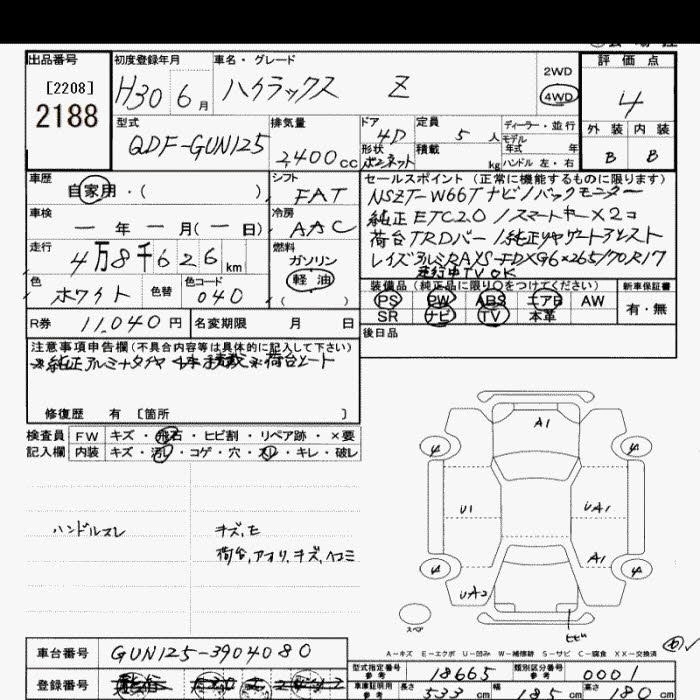 出品番号 初度登録年月 車名・グレード 評価点
[2208]
2188
H30 6月 ハイラックス Z 2WD 4WD 4
型式 排気量 ドア 定員 ディーラー・並行 外装 内装
QDF-GUN125 2,400cc 4D 5人 モデル年式 年 B B
形状 積載 kg ハンドル 左・右
ボンネット
車歴 シフト セールスポイント(正常に機能するものに限ります)
自家用・( ) FAT NSZT-W66Tナビ/バックモニター
車検 冷房 純正ETC2.0/スマートキー×2コ
ー年ー月(ー日) AAC 荷台TRDバー/純正リヤゲートアシスト
走行 燃料 レイズアルミRAYS-FDX G6×265/70R17
4万8千626km ガソリン 走行中TVOK
軽油
色 色替 色コード 装備品(純正品に限り○をつけてください) 新車保証書
ホワイト 040 PS PW ABS エアB AW 有・無
SR ナビ TV 本革
R券 11,040円 名変期限 月 日 後日品
注意事項申告欄(不具合内容等は具体的に記入して下さい)
※純正アルミ+タイヤ4本積載※荷台シート
修復歴 有 [箇所 ]
検査員 FW キズ・飛石・ヒビ割・リペア跡・×要
記入欄 内装 キズ・汚レ・コゲ・穴・スレ・キレ・破レ
ハンドルスレ キズ、モ
荷台、アオリ、キズ、ヘコミ
A1
4 4
U1 UA1
A1
4 4
UA2
スペ ヒビ
A-キズ E-エクボ U-凹み W-補修跡 S-サビ C-腐食 XX-交換済
車台番号 GUN125-3904080
型式指定番号 参考 18665 類別区分番号 参考 0001
登録番号
車庫証明用 参考 長さ 533cm 幅 185cm 高さ 180cm